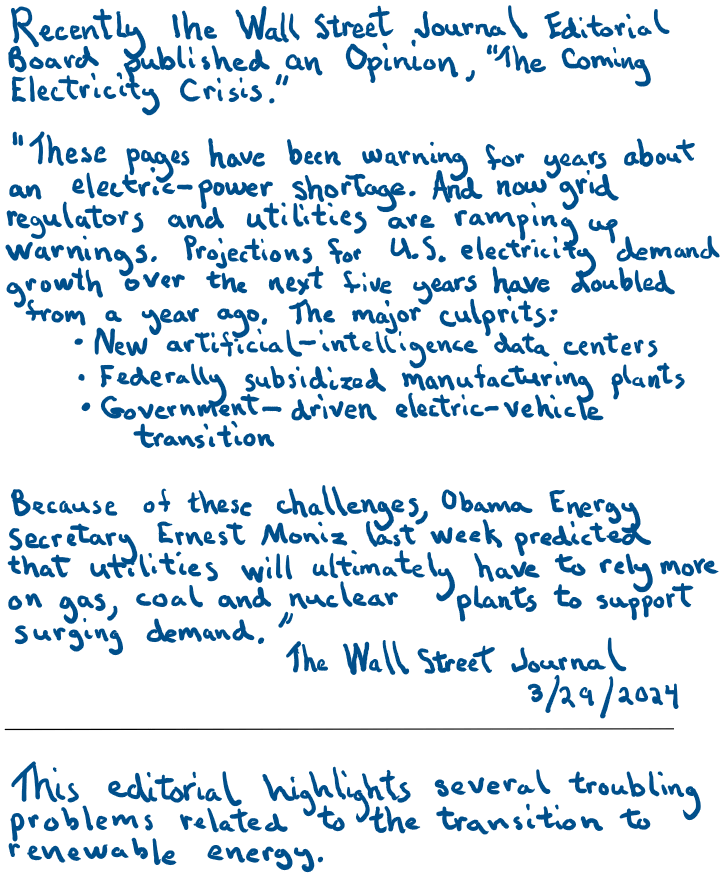 Recently the Wall Street Journal Editorial
Board published an Opinion, "The Coming
Electricity Crisis."
"These pages have been warning for years about
an electric-power shortage. And now grid
regulators and utilities are ramping up
warnings. Projections for U.S. electricity demand
growth over the next five years have doubled
from a year ago. The major culprits:
• New artificial-intelligence data centers
• Federally subsidized manufacturing plants
• Government-driven electric-vehicle
transition
Because of these challenges, Obama Energy
Secretary Ernest Moniz last week predicted
that utilities will ultimately have to rely more
on gas, coal and nuclear plants to support
surging demand."
The Wall Street Journal
3/29/2024
This editorial highlights several troubling
problems related to the transition to
renewable energy.